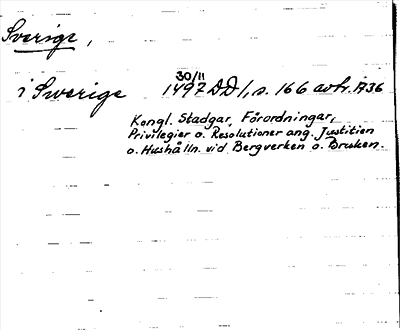 Sverige,
30/11
i Swerige 1492 DD1, s. 166 avtr. 1736
Kongl. Stadgar, Förordningar,
Privilegier o. Resolutioner ang. Justitien
o. Hushålln. vid Bergverken o. Bruken.